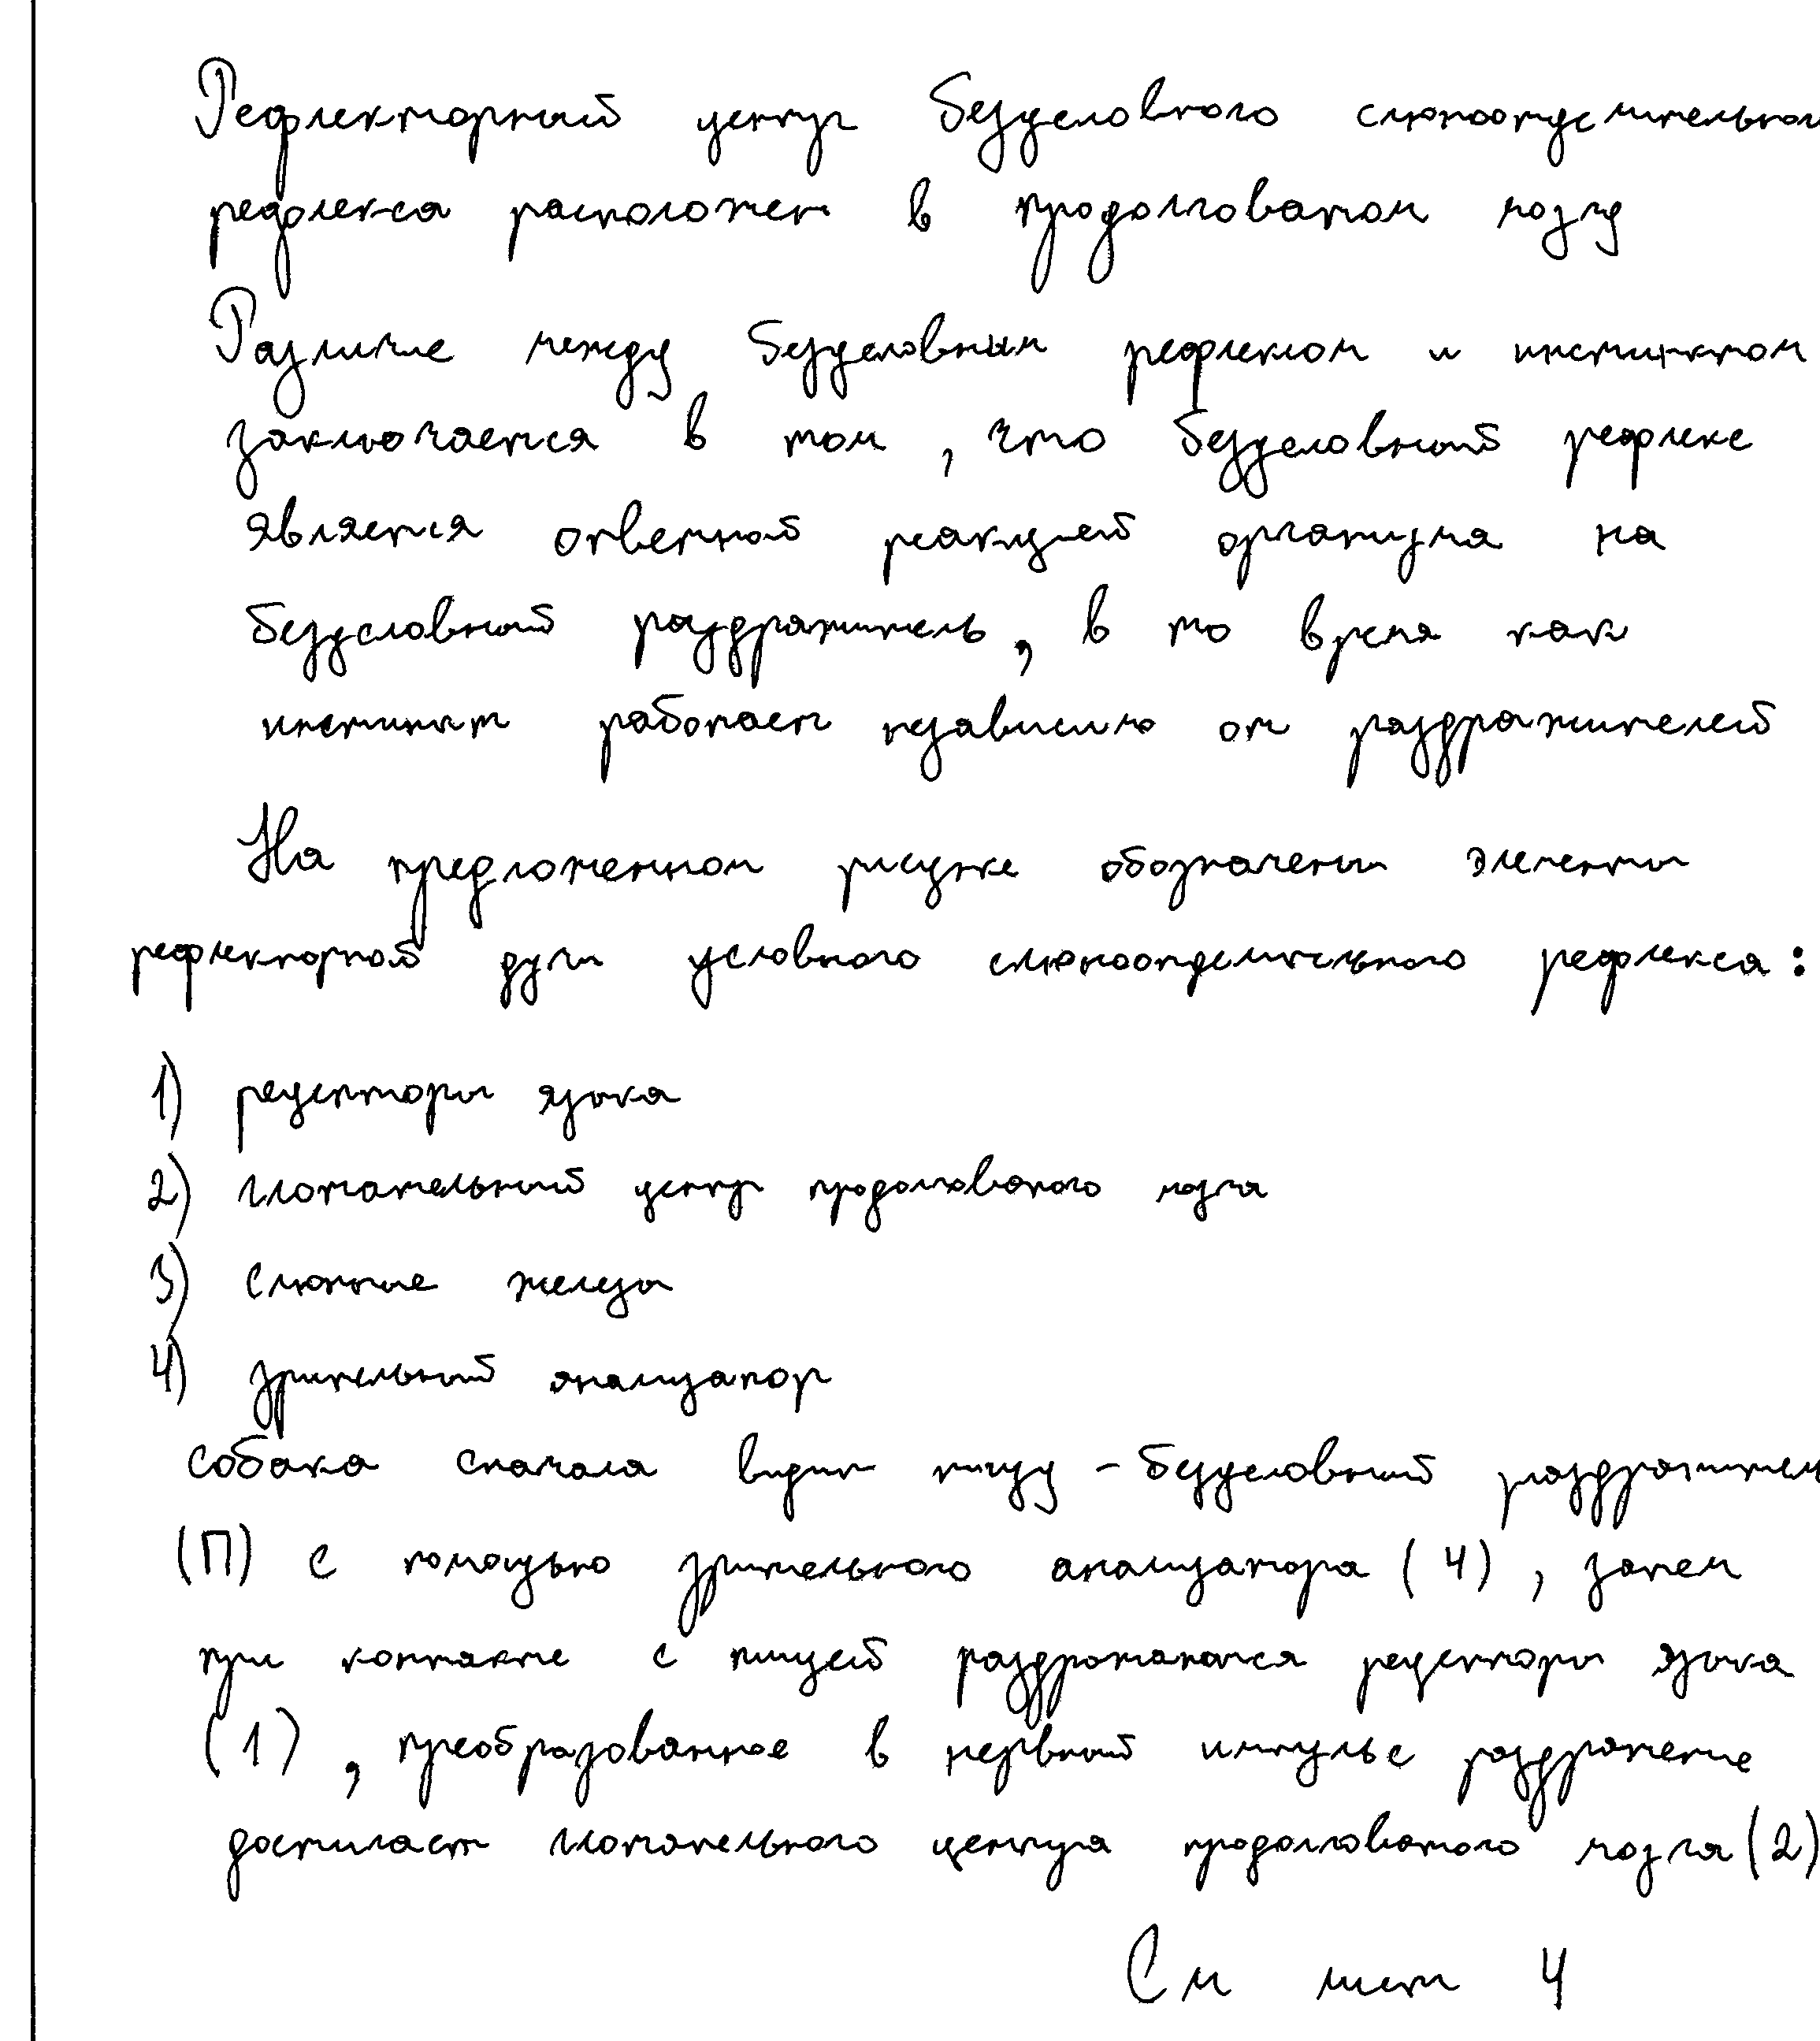 Рефлекторный центр безусловного слюноотделительного
рефлекса расположен в продолговатом мозгу
Различие между безусловным рефлексом и инстинктом
заключается в том, что безусловный рефлекс
является ответной реакцией организма на
безусловный раздражитель, в то время как
инстинкт работает независимо от раздражителей
На предложенном рисунке обозначены элементы
рефлекторной дуги условного слюноотделительного рефлекса:
1) рецепторы языка
2) глотательный центр продолговатого мозга
3) слюнные железы
4) зрительный анализатор
собака сначала видит пищу - безусловный раздражитель
(П) с помощью зрительного анализатора (4), затем
при контакте с пищей раздражаются рецепторы языка
(1), преобразованное в нервный импульс раздражение
достигает глотательного центра продолговатого мозга (2)
См лист 4